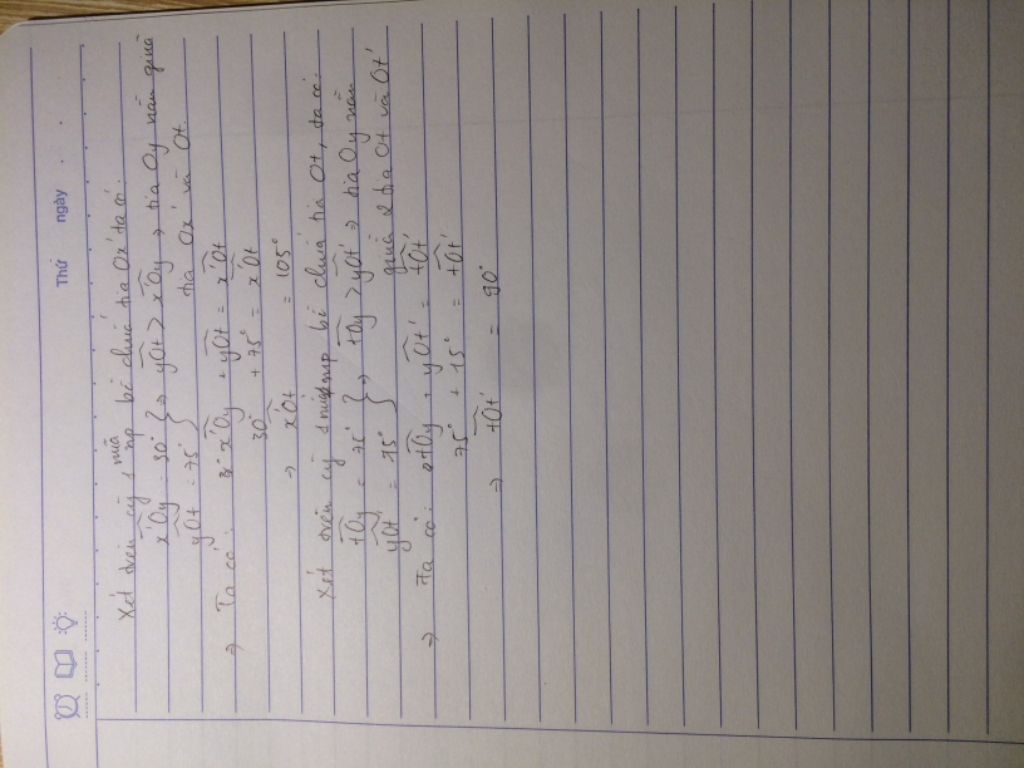 Thứ ngày
Xét trên cg 1 nửa mp bờ chứa tia Ox' ta có:
x'Oy = 30° } => yOt > x'Oy => tia Oy nằm giữa
yOt = 75° tia Ox' và Ot
=> Ta có: x'Oy + yOt = x'Ot
30° + 75° = x'Ot
=> x'Ot = 105°
Xét trên cg 1 nửa mp bờ chứa tia Ot, ta có:
tOy = 75° } => tOy > yOt' => tia Oy nằm
yOt' = 15° giữa 2 tia Ot và Ot'
=> Ta có: tOy + yOt' = tOt'
75° + 15° = tOt'
=> tOt' = 90°